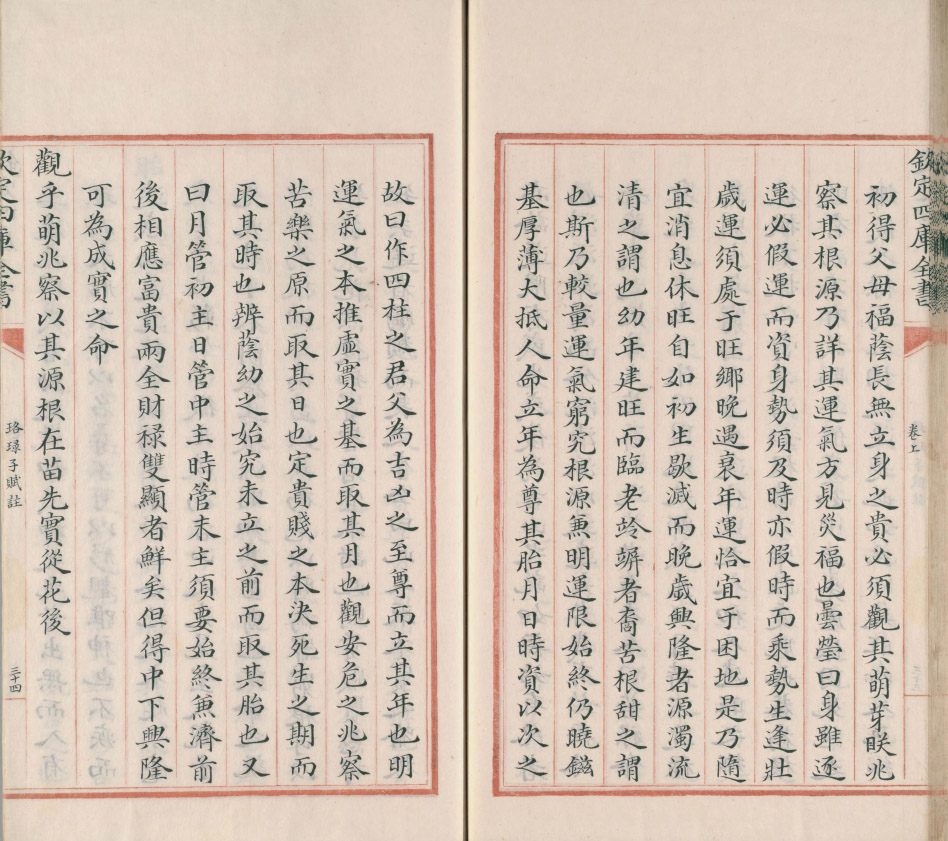 欽定四庫全書
卷上
初得父母福蔭長無立身之貴必須觀其萌芽眹兆
察其根源乃詳其運氣方見災福也曇瑩曰身雖逐
運必假運而資身勢須及時亦假時而乘勢生逢壯
歲運須處于旺鄉晚遇衰年運恰宜于困地是乃隨
宜消息休旺自如初生歇滅而晚歲興隆者源濁流
清之謂也幼年建旺而臨老竛竮者裔苦根甜之謂
也斯乃較量運氣窮究根源兼明運限始終仍曉鎡
基厚薄大抵人命立年為尊其胎月日時資以次之
故曰作四柱之君父為吉凶之至尊而立其年也明
運氣之本推虛實之基而取其月也觀安危之兆察
苦樂之原而取其日也定貴賤之本決死生之期而
取其時也辨蔭幼之始究未立之前而取其胎也又
曰月管初主日管中主時管末主須要始終兼濟前
後相應富貴兩全財祿雙顯者鮮矣但得中下興隆
可為成實之命
觀乎萌兆察以其源根在苗先實從花後
欽定四庫全書
珞琭子賦註
三十四